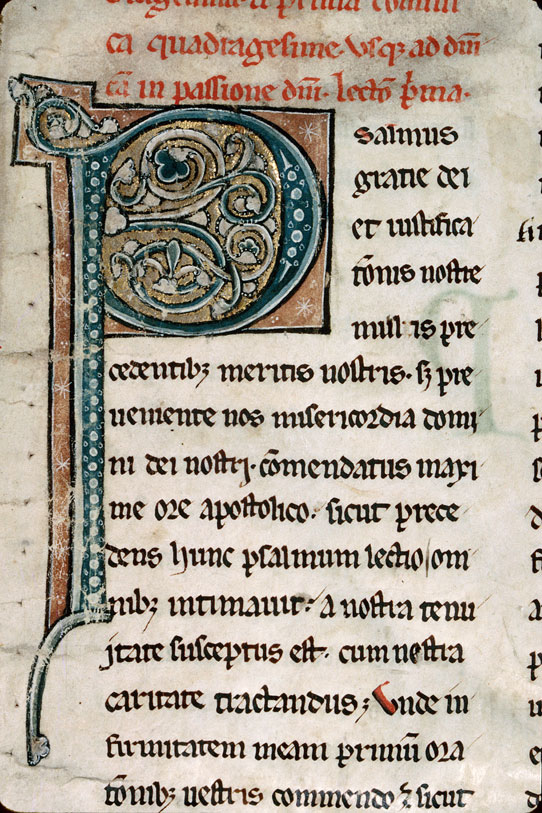 ca quadragesime. Vsq; ad dm̄i
cā in passione dn̄i. lectō p̄ma.
Psalmus
gratie dei
et iustifica
tōnis nostre
nullis pre
cedentib; meritis nostris. sꝫ pre
ueniente nos misericordia domi
ni dei nostrj. cōmendatus maxi
me ore apostolico. sicut prece
dens hunc psalmum lectio om
nib; intimauit. a nostra tenu
jtate susceptus est. cum nostra
caritate tractandus; Vnde in
firmitatem meam primū ora
tōnib; uestris commendo ⁊ sicut